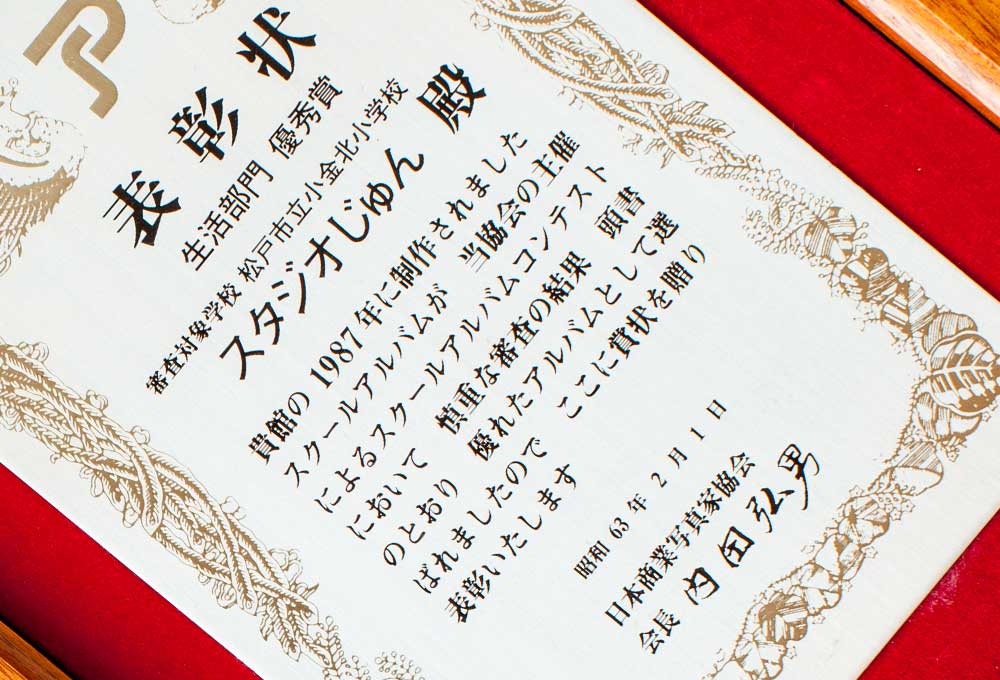 表彰状
生活部門 優秀賞
審査対象学校 松戸市立小金北小学校
スタジオじゅん 殿
貴館の1987年に制作されました
スクールアルバムが 当協会の主催
によるスクールアルバムコンテスト
において 慎重な審査の結果 頭書
のとおり 優れたアルバムとして選
ばれましたので ここに賞状を贈り
表彰いたします
昭和63年2月1日
日本商業写真家協会
会長 内田弘男